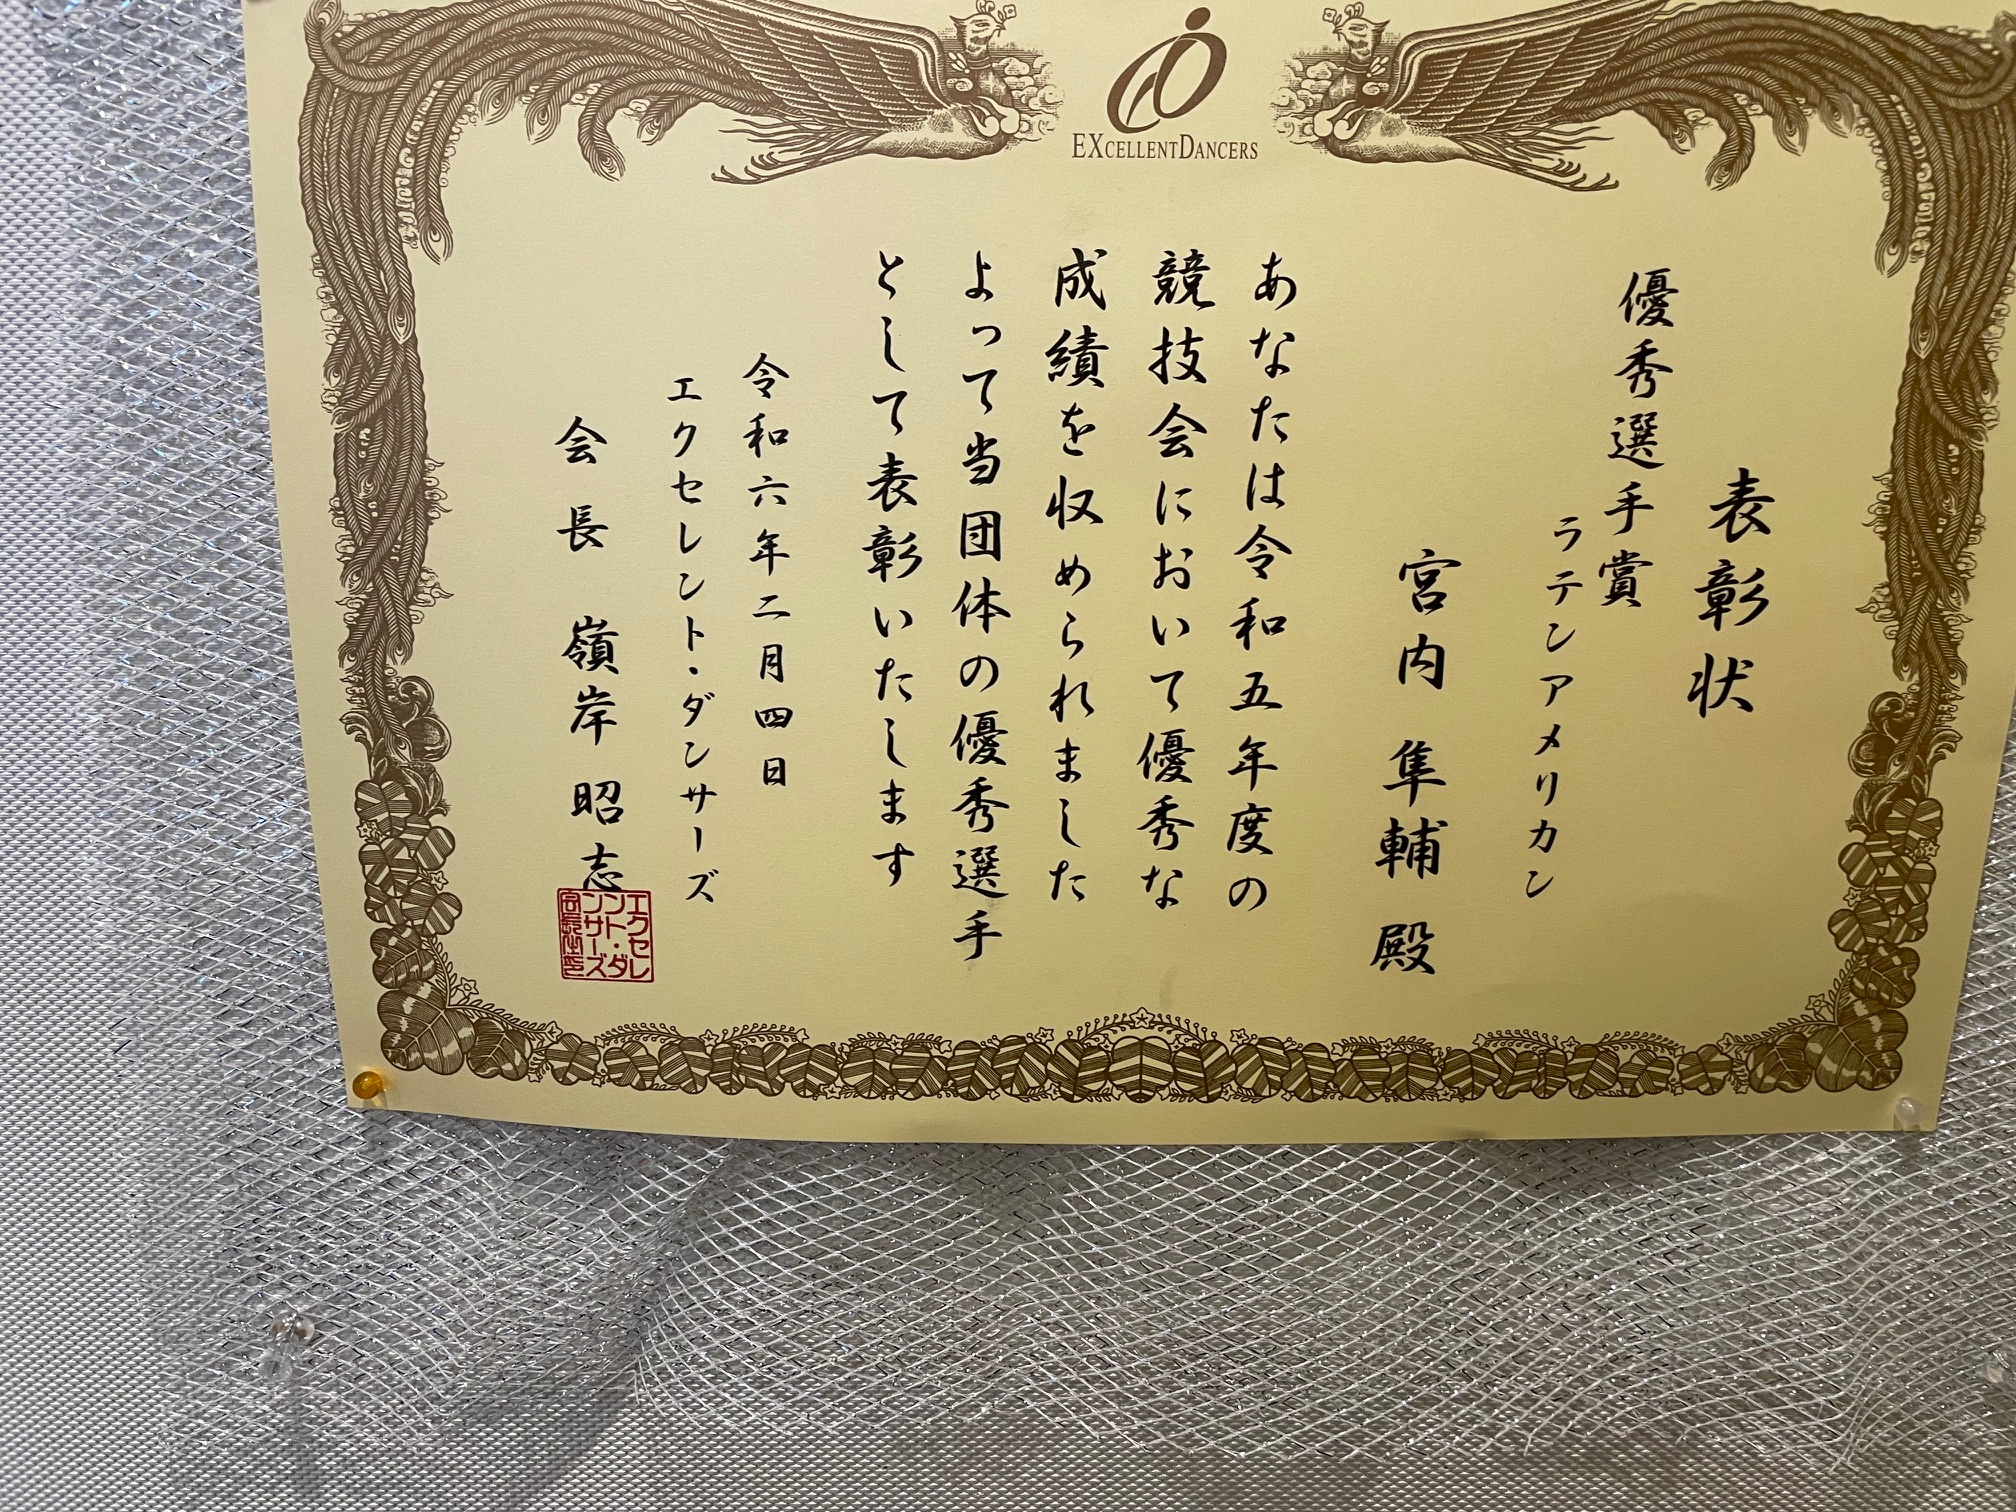 EXCELLENTDANCERS
表彰状
優秀選手賞
ラテンアメリカン
宮内 隼輔 殿
あなたは令和五年度の
競技会において優秀な
成績を収められました
よって当団体の優秀選手
として表彰いたします
令和六年二月四日
エクセレント・ダンサーズ
会長 嶺岸 昭志
エクセレ
ント・ダ
ンサーズ
会長之印